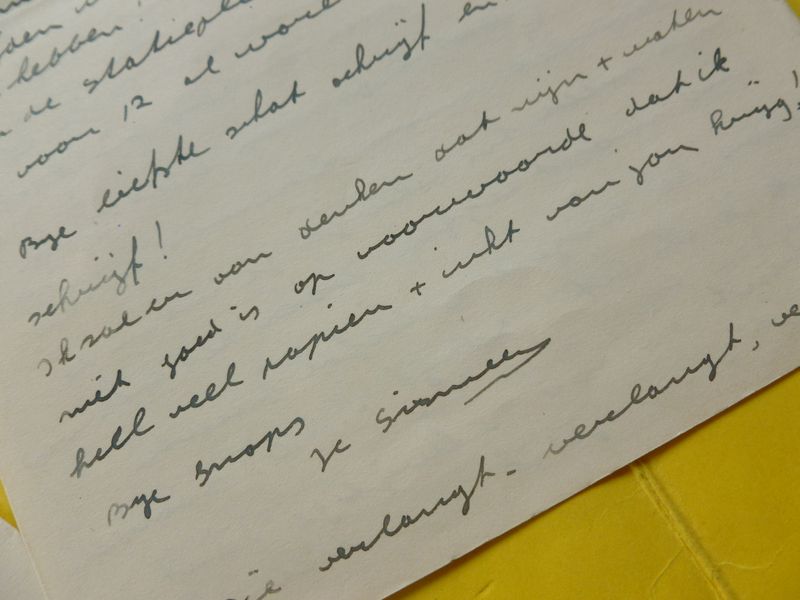 hebben
de
voor 12 al
Bye liefste schat schrijft en
schrijft!
Ik sal er van denken dat wijn + water
niet goed is op voorwaarde dat ik
heel veel papier + inkt van jou krijg!
Bye Snoops
Je
die verlangt - verlangt, ve